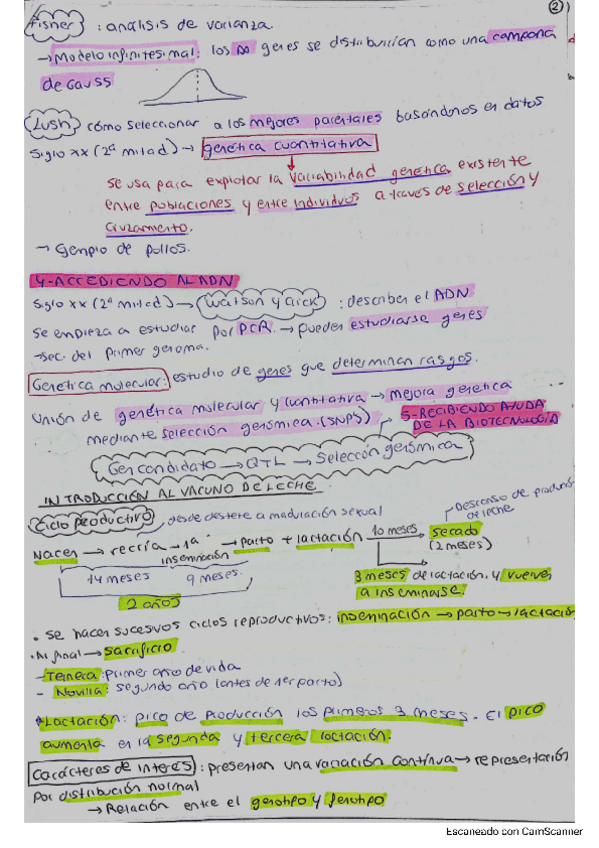 ②
Fisher : análisis de varianza.
→ Modelo infinitesimal: los ∞ genes se distribuirían como una campana
de Gauss
Lush cómo seleccionar a los mejores parentales basándonos en datos
Siglo XX (2ª mitad) → genética cuantitativa
Se usa para explotar la variabilidad genética existente
entre poblaciones y entre individuos a través de selección y
cruzamiento.
→ Ejemplo de pollos.
4-ACCEDIENDO AL ADN
Siglo XX (2ª mitad) → Watson y Crick : describen el ADN
Se empieza a estudiar por PCR. → pueden estudiarse genes
→ sec. del primer genoma.
Genética molecular: estudio de genes que determinan rasgos.
Unión de genética molecular y cuantitativa → mejora genética
mediante selección genómica. (SNPS) 5-RECIBIENDO AYUDA
DE LA BIOTECNOLOGÍA
Gen candidato → QTL → Selección genómica
INTRODUCCIÓN AL VACUNO DE LECHE.
Ciclo productivo desde destete a maduración sexual
Descenso de produc
de leche
Nacen → recría → 1ª → parto + lactación 10 meses secado
inseminación (2 meses)
14 meses 9 meses.
3 meses de lactación y vuelven
a inseminarse.
2 años
. Se hacen sucesivos ciclos reproductivos: inseminación → parto → lactación
. Al final → sacrificio
- Ternera: primer año de vida
- Novilla: segundo año (antes de 1er parto)
*Lactación: pico de producción los primeros 3 meses. El pico
aumenta en la segunda y tercera lactación.
Carácteres de interés : presentan una variación continua → representación
por distribución normal
→ Relación entre el genotipo y fenotipo
Escaneado con CamScanner